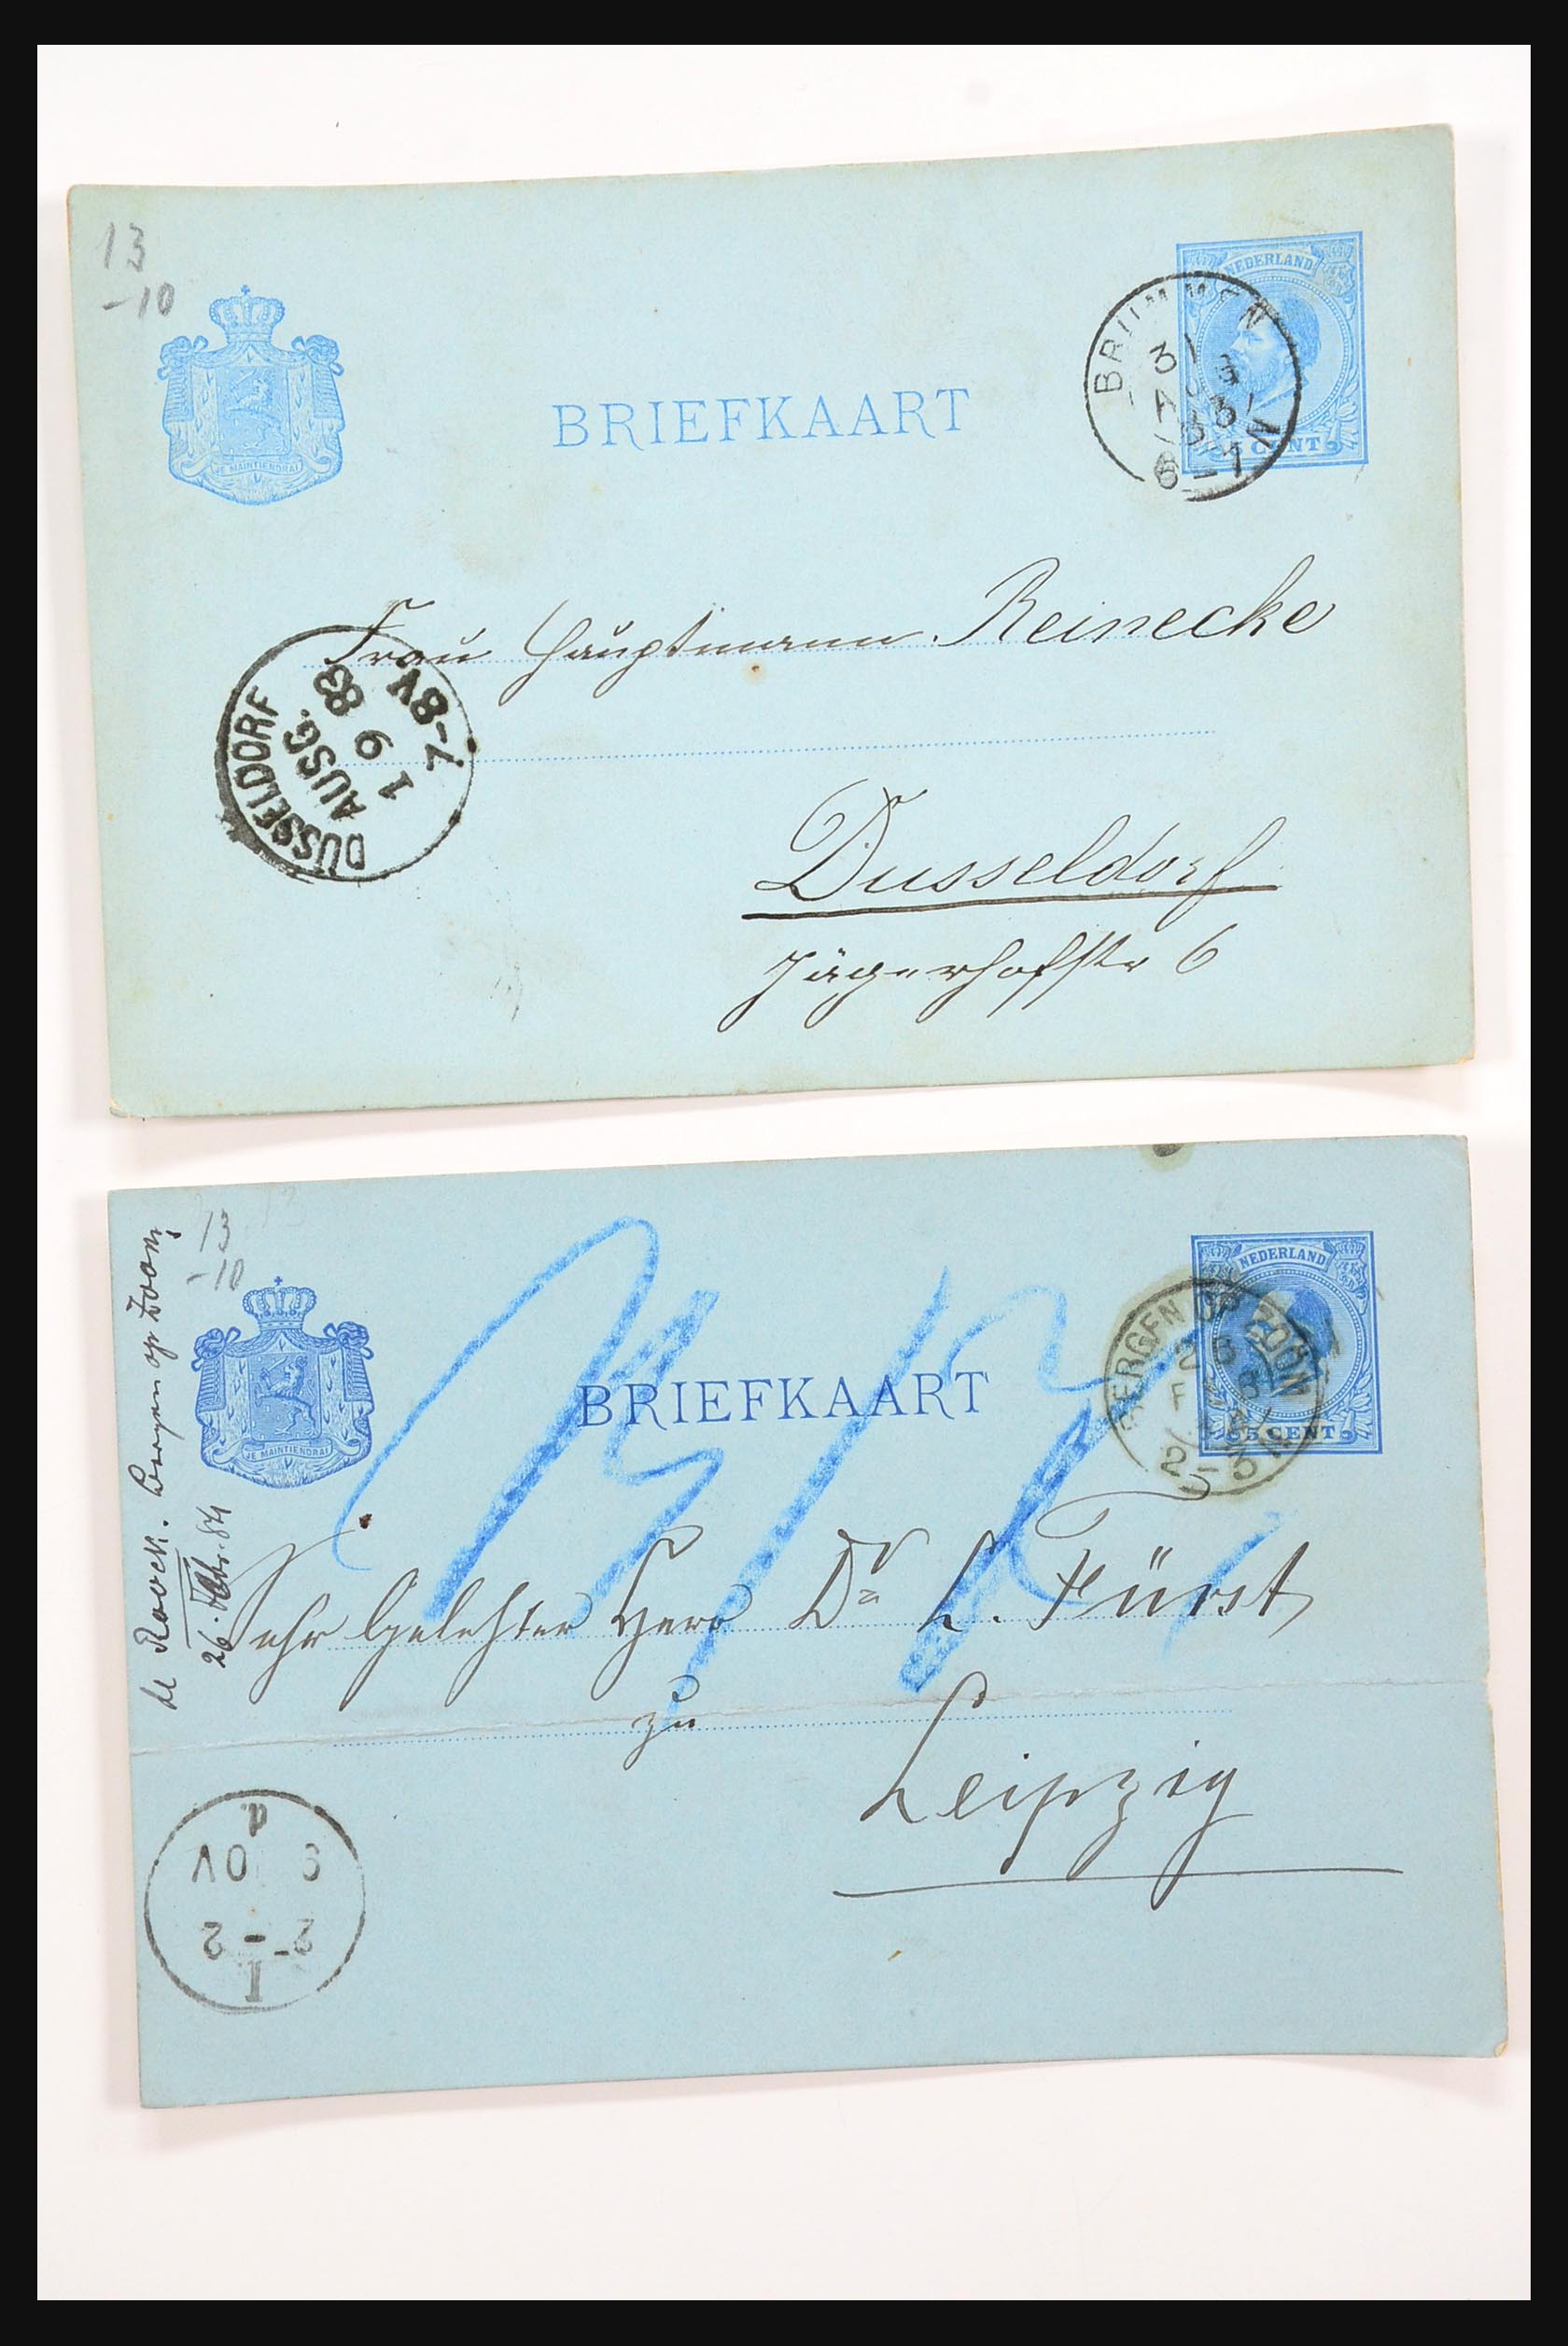 13
-10
JE MAINTIENDRAI
BRIEFKAART
NEDERLAND
5 CENT
BRUMMEN
31
6-7 N
Frau Hauptmann Reinecke
DÜSSELDORF
AUSG.
1 9 83
7-8V.
Dusseldorf
Jägerhofstr 6
de Roock. Bergen op Zoom,
26. Febr. 84
13
-10
JE MAINTIENDRAI
BRIEFKAART
NEDERLAND
5 CENT
BERGEN OP ZOOM
2-3 N
Sehr Gelehter Herr Dr L. Fürst
zu
Leipzig